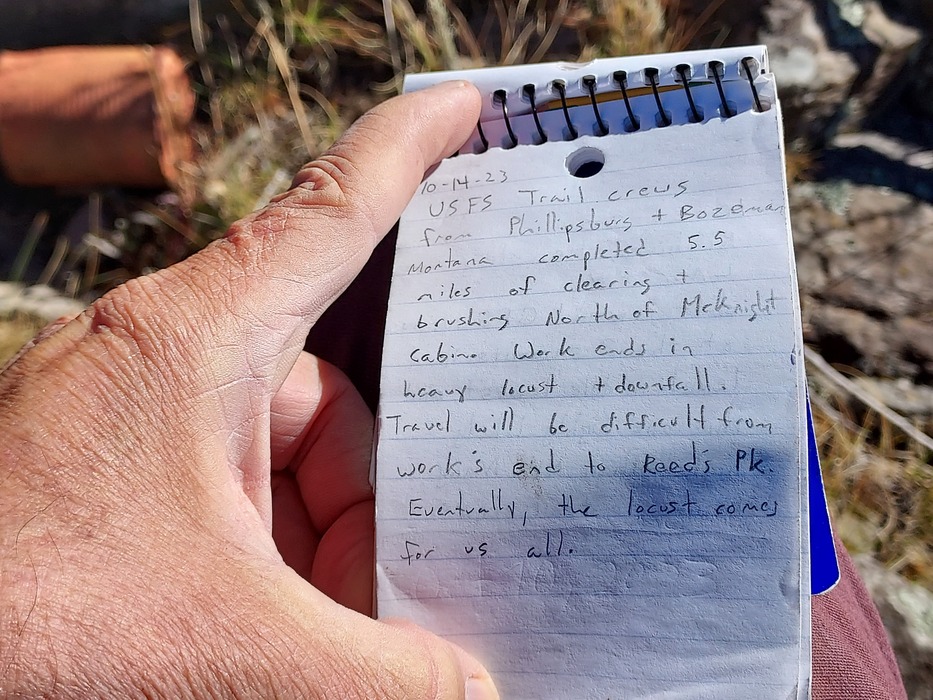 10-14-23
USFS Trail crews
from Phillipsburg + Bozeman
Montana completed 5.5
miles of clearing +
brushing North of McKnight
cabin. Work ends in
heavy locust + downfall.
Travel will be difficult from
work's end to Reed's Pk.
Eventually, the locust comes
for us all.